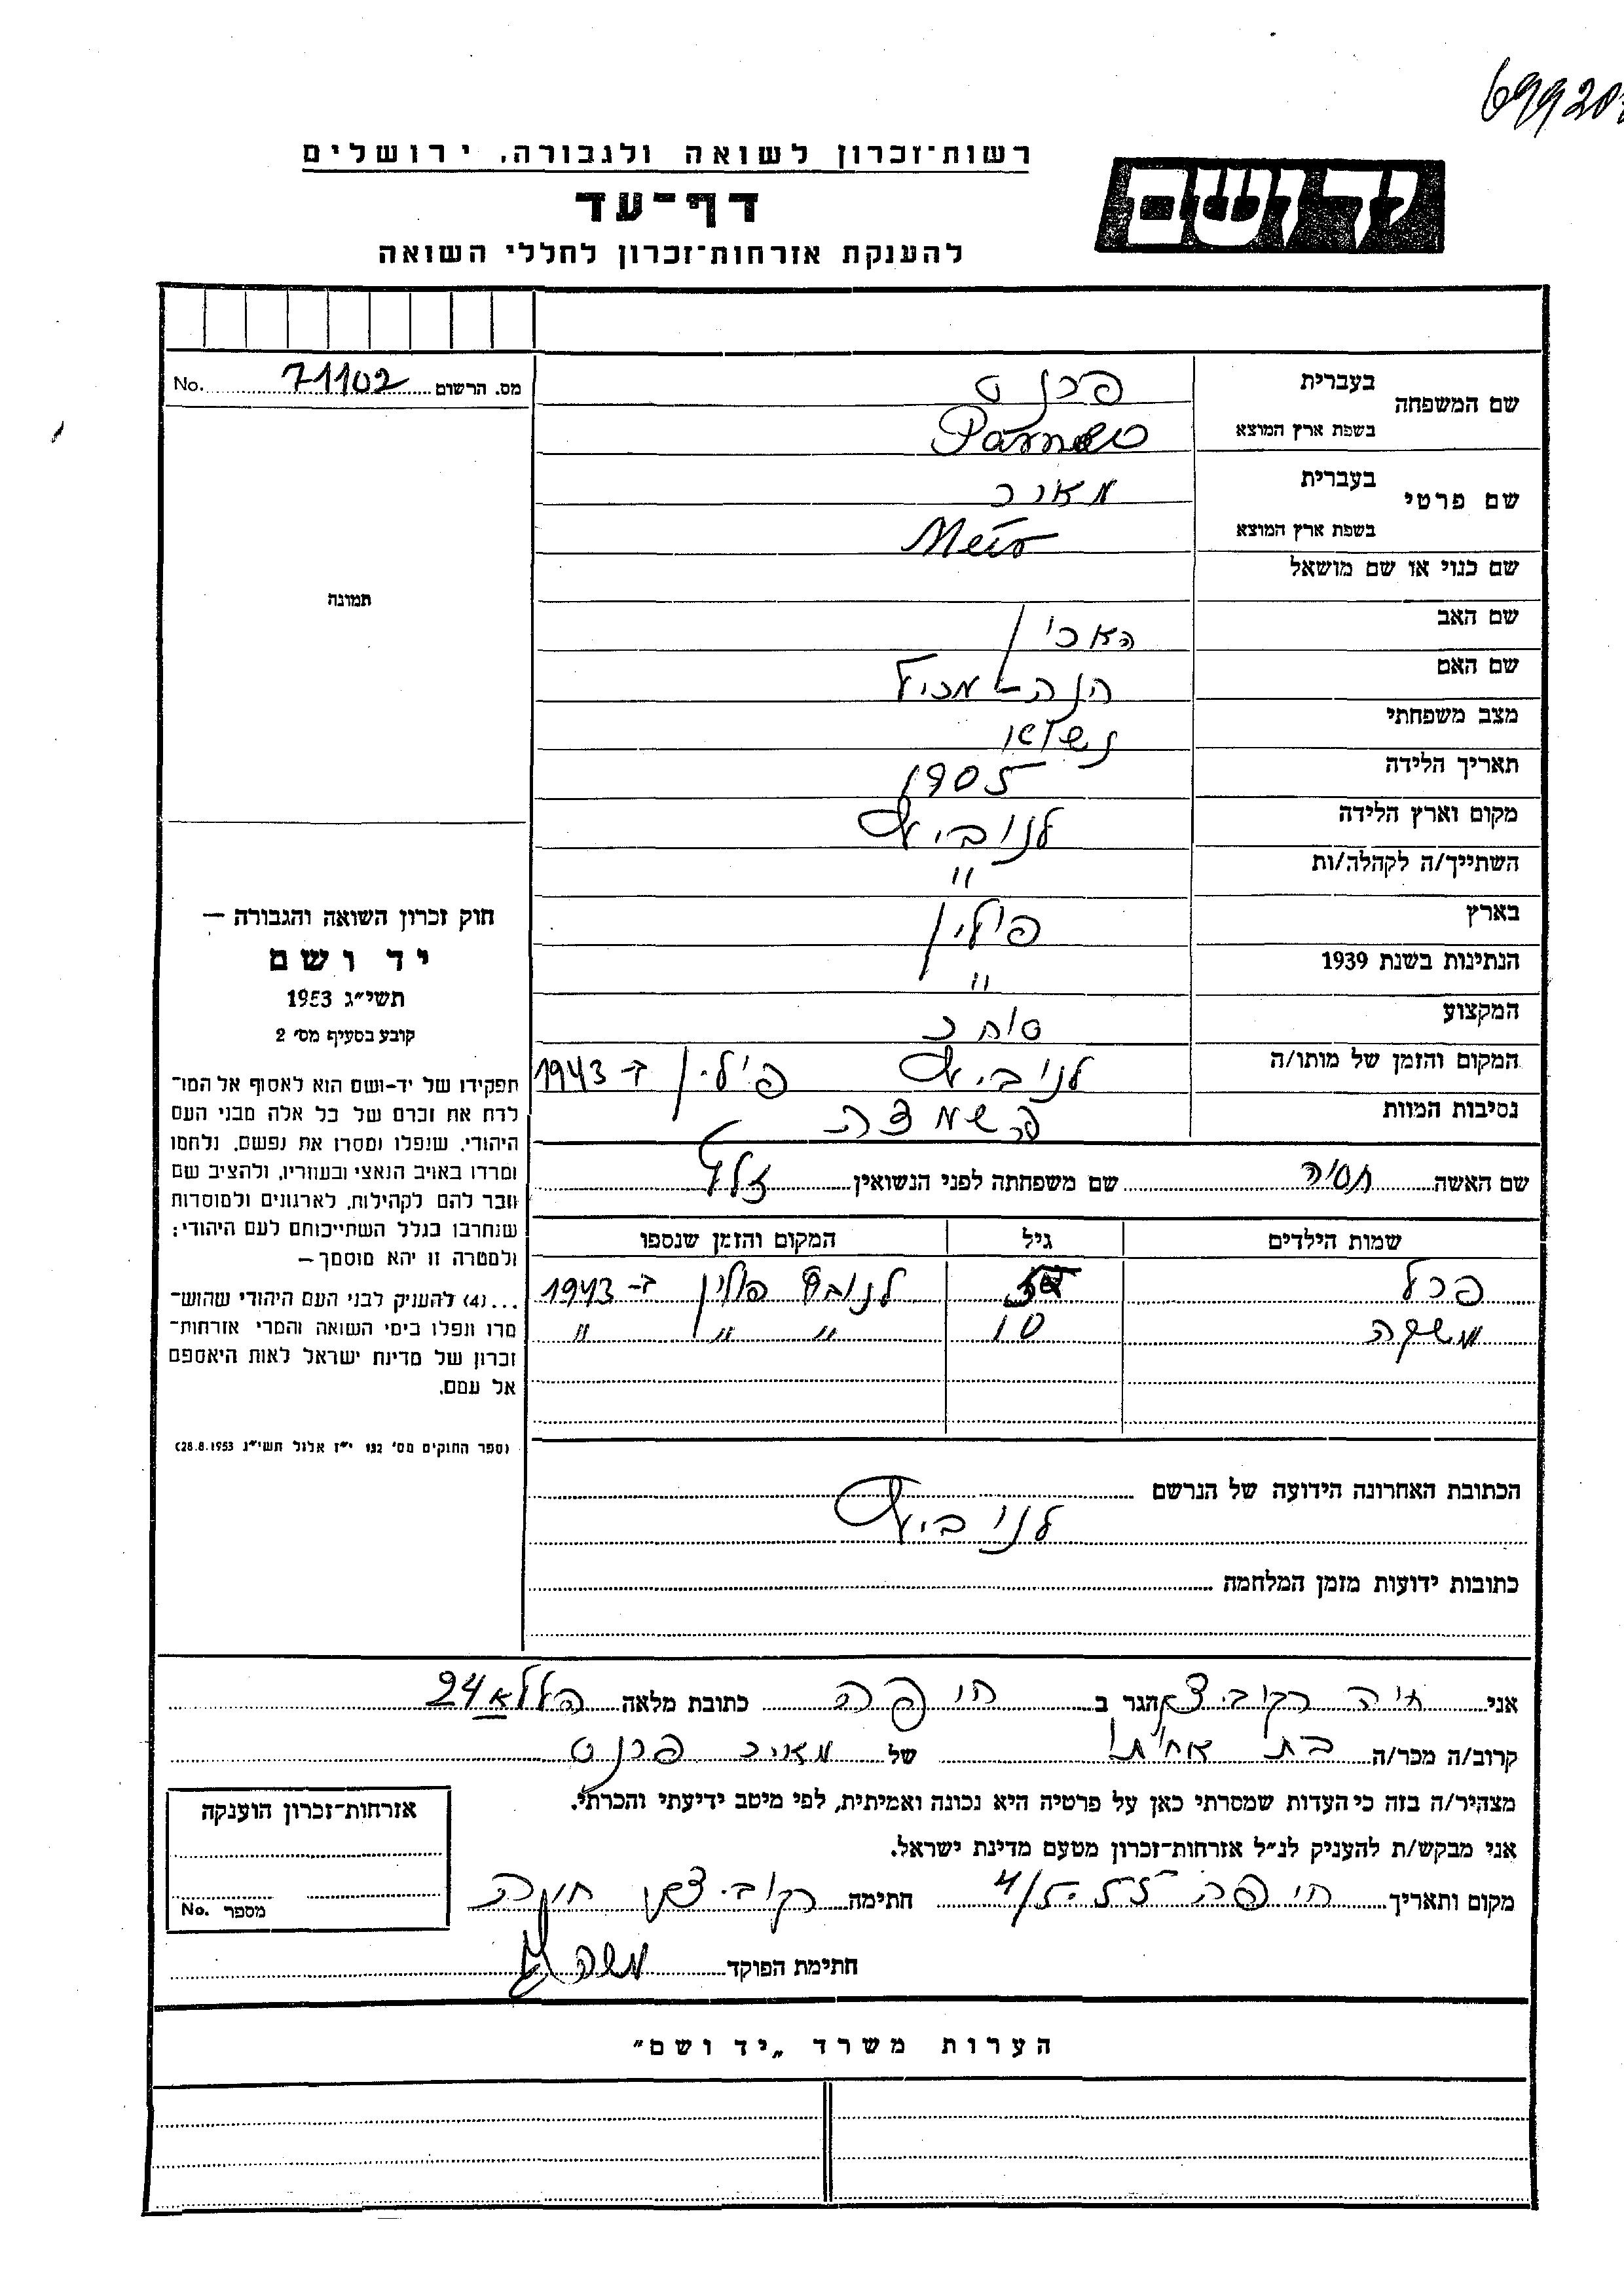 699201
רשות־זכרון לשואה ולגבורה, ירושלים
יד ושם
דף־עד
להענקת אזרחות־זכרון לחללי השואה
מס. הרשום 71102 No.
שם המשפחה
בעברית פרנס
בשפת ארץ המוצא
שם פרטי
בעברית מאיר
בשפת ארץ המוצא Meir
שם כנוי או שם מושאל
שם האב
שם האם
מצב משפחתי נשוי
תאריך הלידה 1905
מקום וארץ הלידה
השתייך/ה לקהלה/ות "
בארץ פולין
הנתינות בשנת 1939 "
המקצוע סוחר
המקום והזמן של מותו/ה פולין ב־1943
נסיבות המוות השמדה
שם האשה שם משפחתה לפני הנשואין
שמות הילדים גיל המקום והזמן שנספו
פולין ב־1943
משה 10 " " "
הכתובת האחרונה הידועה של הנרשם
כתובות ידועות מזמן המלחמה
תמונה
חוק זכרון השואה והגבורה —
יד ושם
תשי״ג 1953
קובע בסעיף מס׳ 2
תפקידו של יד-ושם הוא לאסוף אל המו־
לדת את זכרם של כל אלה מבני העם
היהודי, שנפלו ומסרו את נפשם, נלחמו
ומרדו באויב הנאצי ובעוזריו, ולהציב שם
וזכר להם לקהילות, לארגונים ולמוסדות
שנחרבו בגלל השתייכותם לעם היהודי;
ולמטרה זו יהא מוסמך —
...(4) להעניק לבני העם היהודי שהוש־
מדו ונפלו בימי השואה והמרי אזרחות־
זכרון של מדינת ישראל לאות היאספם
אל עמם.
(ספר החוקים מס׳ 132 י״ז אלול תשי״ג 28.8.1953)
אני חיה רקוביצקי הגר ב חיפה כתובת מלאה הללא 24
קרוב/ה מכר/ה בת אחותו של מאיר פרנס
מצהיר/ה בזה כי העדות שמסרתי כאן על פרטיה היא נכונה ואמיתית, לפי מיטב ידיעתי והכרתי.
אני מבקש/ת להעניק לנ״ל אזרחות־זכרון מטעם מדינת ישראל.
מקום ותאריך חיפה חתימה
חתימת הפוקד משה
אזרחות־זכרון הוענקה
מספר No.
הערות משרד „יד ושם״